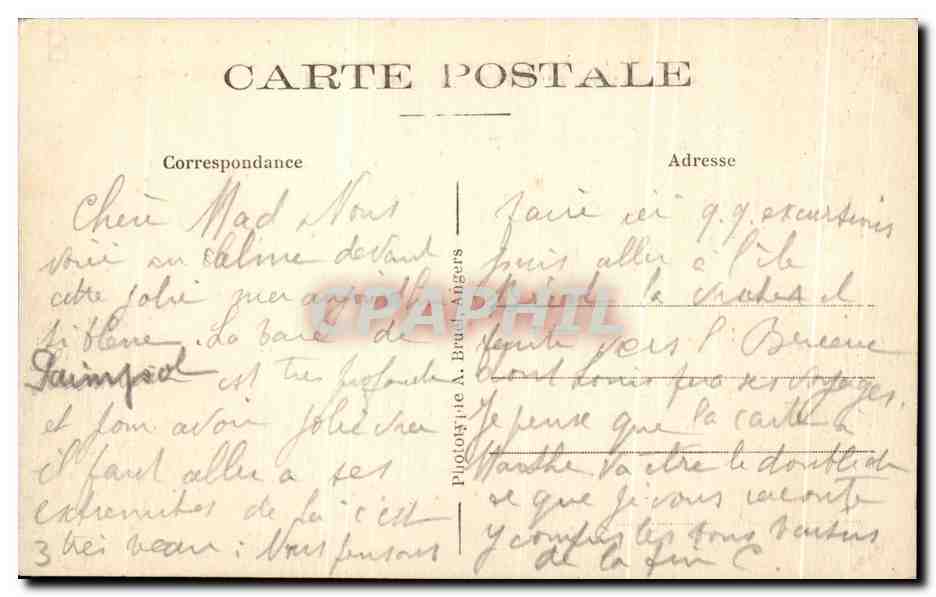 CARTE POSTALE
Correspondance
Chère Mad Nous
voici au calme devant
cette jolie mer aujourd'h
si bleue. La baie de
Paimpol est très profonde
et pour avoir jolie vue
il faut aller a ses
extremites de là c'est
3 très beau : Nous pensons
Phototypie A. Bruel, Angers
Adresse
faire ici q.q. excursions
puis aller à l'île
la
vers S. Brieuc
dont Louis fera ses voyages.
Je pense que la carte à
Marthe va être le double de
ce que je vous raconte
y compris les bons baisers
de la fin C.
CPAPHIL